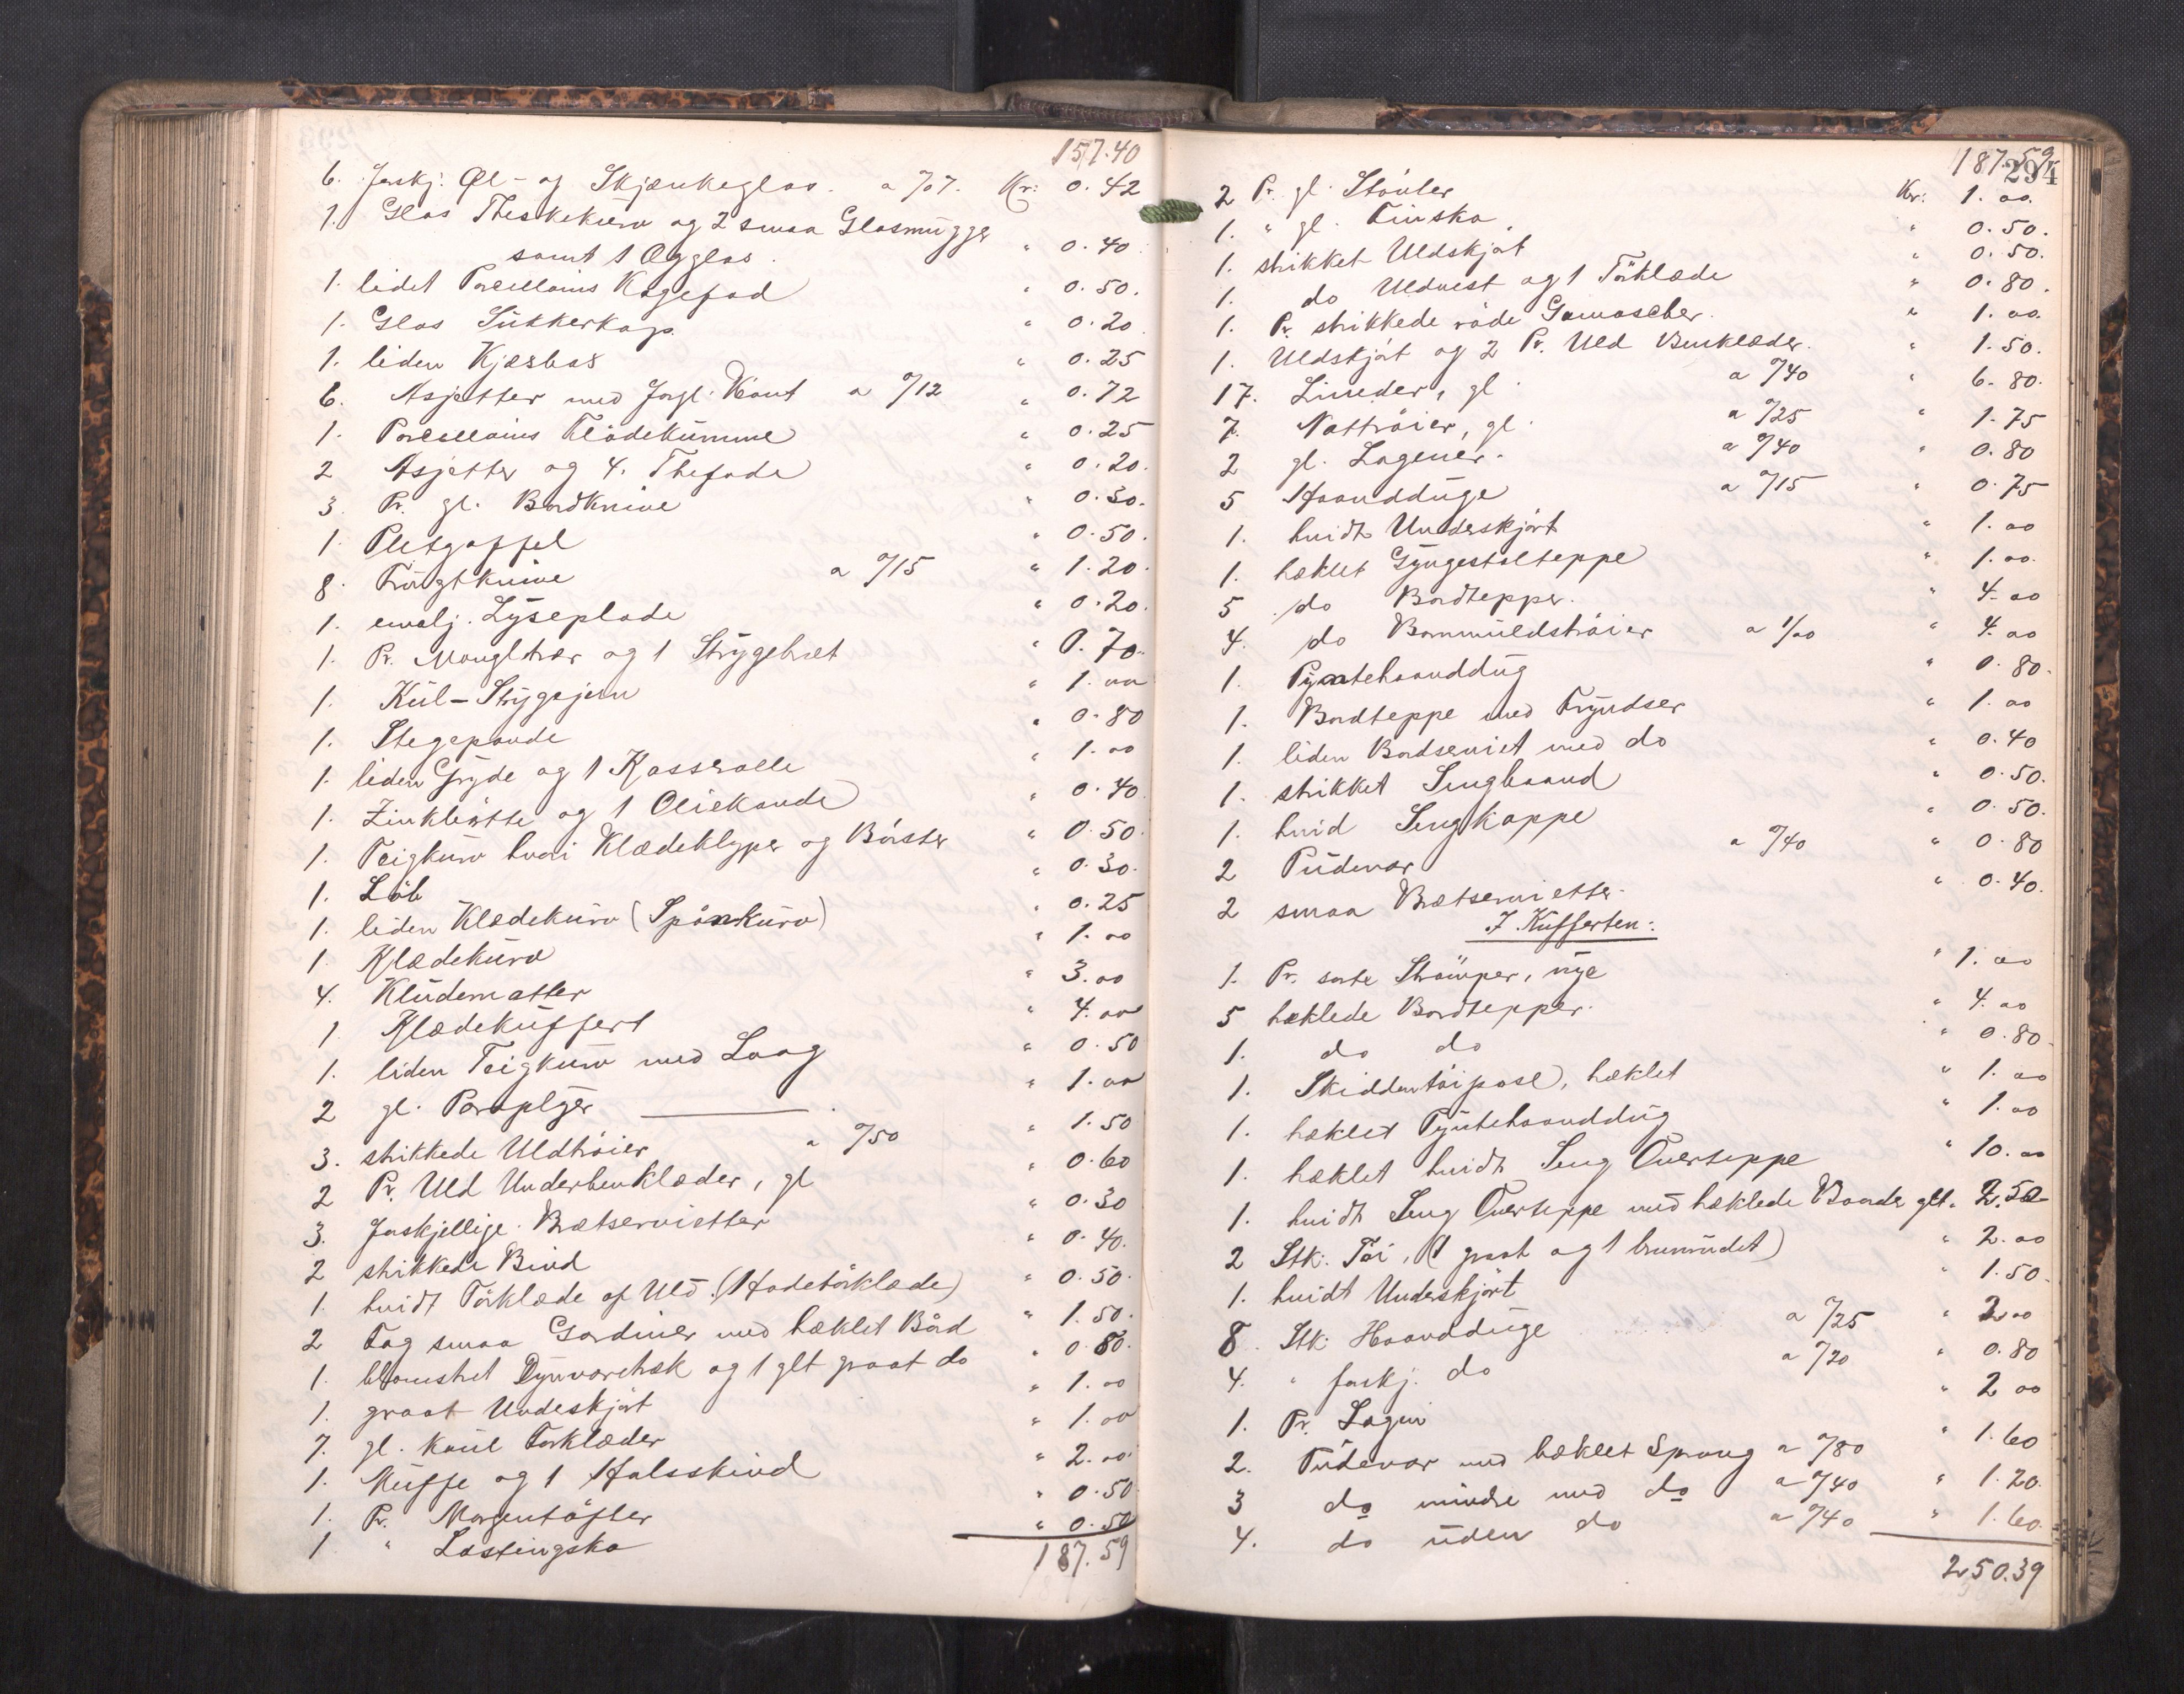 157.40
6. forskj. Øl- og Skjænkeglas. a %07. Kr: 0.42
1. Glas Theskekurv og 2 smaa Glasmugger
samt 1 Ægglas. " 0.40
1. lidet Porcellains Kagefad " 0.50.
1. Glas Sukkerkop. " 0.20
1. liden Kjæsbas " 0.25
6. Asjetter med forgl. Kant a %12 " 0.72
1. Porcellains Flödekumme " 0.25
2 Asjetter og 4. Thefade " 0.20.
3. Pr. gl. Bordknive " 0.30.
1. Pletgaffel " 0.50.
8. Frugtknive a %15 " 1.20.
1. emalj. Lyseplade " 0.20.
1. Pr. Mangletrær og 1 Strygebræt " 0.70.
1. Kul-Strygejern " 1.00
1. Stegepande " 0.80
1. liden Gryde og 1 Kasserolle " 1.00
1. Zinkbøtte og 1 Oliekande " 0.40
1. Teigkurv hvori Klædeklyper og Börster " 0.50.
1. Löb " 0.30.
1. liden Klædekurv (Spönkurv) " 0.25
1 Klædekurv " 1.00
4. Kludematter " 3.00
1 Klædekuffert " 4.00
1. liden Teigkurv med Laag " 0.50
2 gl. Paraplyer " 1.00
3. strikkede Uldtröier a %50 " 1.50
2 Pr. Uld Underbenklæder, gl " 0.60
3. forskjellige Brætservietter " 0.30
2 strikkede Bind " 0.40.
1. hvidt Törklæde af Uld. (Hodetörklæde) " 0.50.
2 Fag smaa Gardiner med hæklet Bård " 1.50.
1. blomstret Dynvaretræk og 1 glt graat do " 0.80.
1. graat Underskjört " 1.00
7. gl. kaul Forklæder " 1.00
1. Muffe og 1 Halsskind " 2.00
1. Pr. Morgentöfler " 0.50
1 " Lastingsko " 0.50
187.59
187.59
294
2 Pr. gl. Stövler Kr: 1.00.
1. " gl. Finsko " 0.50.
1. strikket Uldskjört " 0.50.
1. do Uldvest og 1 Törklæde " 0.80.
1. Pr. strikkede röde Gamascher. " 1.00.
1. Uldskjört og 2 Pr. Uld Benklæder. " 1.50.
17. Linneder, gl. a %40 " 6.80.
7. Nattröier, gl. a %25 " 1.75
2 gl. Lagener. a %40 " 0.80
5 Haandduge a %15 " 0.75
1. hvidt Underskjört " 1.00
1. hæklet Gyngestolteppe " 1.00.
5 do Bordtepper. " 4.00
4. do Bommuldströier a 1/00 " 4.00
1. Pyntehaanddug " 0.80.
1. Bordteppe med Fryndser " 1.00
1. liden Bordserviet med do " 0.40
1. strikket Sengbaand " 0.50.
1. hvid Sengkappe " 0.50.
2 Pudevar a %40 " 0.80
2 smaa Brætservietter. " 0.40.
I Kufferten:
1. Pr. sorte Strömper, nye " 1.00
5 hæklede Bordtepper. " 4.00
1. do do " 0.80.
1. Skiddentöipose, hæklet " 1.00
1. hæklet Pyntehaanddug " 1.00
1. hæklet hvidt Seng Överteppe " 10.00
1. hvidt Seng Överteppe med hæklede Baarder glt. 2.50
2 Stk. Töi, (1 graat og 1 brunrudet) " 2.00
1. hvidt Underskjört " 1.50.
8. Stk. Haandduge a %25 " 2.00
4. " forskj. do a %20 " 0.80
1. Pr. Lagen " 2.00
2. Pudevar med hæklet Sprang a %80 " 1.60
3 do mindre med do a %40 " 1.20.
4. do uden do a %40 " 1.60.
250.39